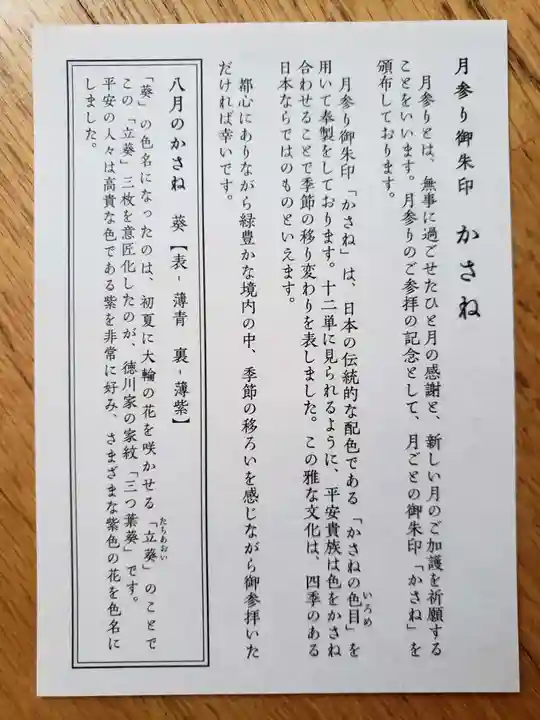 月参り御朱印　かさね
月参りとは、無事に過ごせたひと月の感謝と、新しい月のご加護を祈願する
ことをいいます。月参りのご参拝の記念として、月ごとの御朱印「かさね」を
頒布しております。
月参り御朱印「かさね」は、日本の伝統的な配色である「かさねの色目」を
いろめ
用いて奉製をしております。十二単に見られるように、平安貴族は色をかさね
合わせることで季節の移り変わりを表しました。この雅な文化は、四季のある
日本ならではのものといえます。
都心にありながら緑豊かな境内の中、季節の移ろいを感じながら御参拝いた
だければ幸いです。
八月のかさね　葵【表-薄青　裏-薄紫】
「葵」の色名になったのは、初夏に大輪の花を咲かせる「立葵」のことで
たちあおい
この「立葵」三枚を意匠化したのが、徳川家の家紋「三つ葉葵」です。
平安の人々は高貴な色である紫を非常に好み、さまざまな紫色の花を色名に
しました。